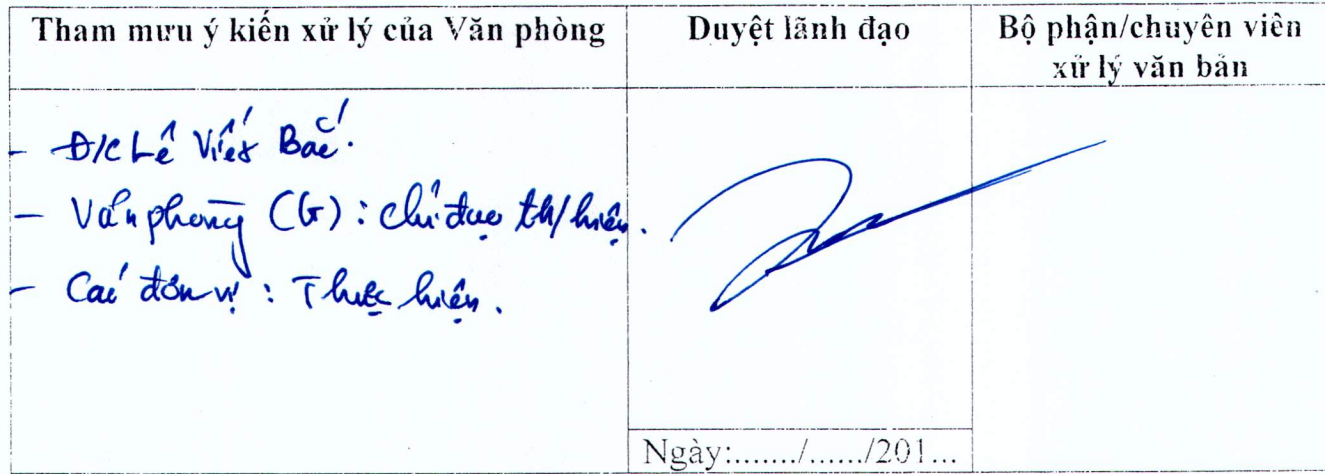 Tham mưu ý kiến xử lý của Văn phòng
Duyệt lãnh đạo
Bộ phận/chuyên viên
xử lý văn bản
- Đ/c Lê Viết Bắc.
- Văn phòng (G): chỉ đạo th/hiện.
- Các đơn vị: Thực hiện.
Ngày:......./....../201...